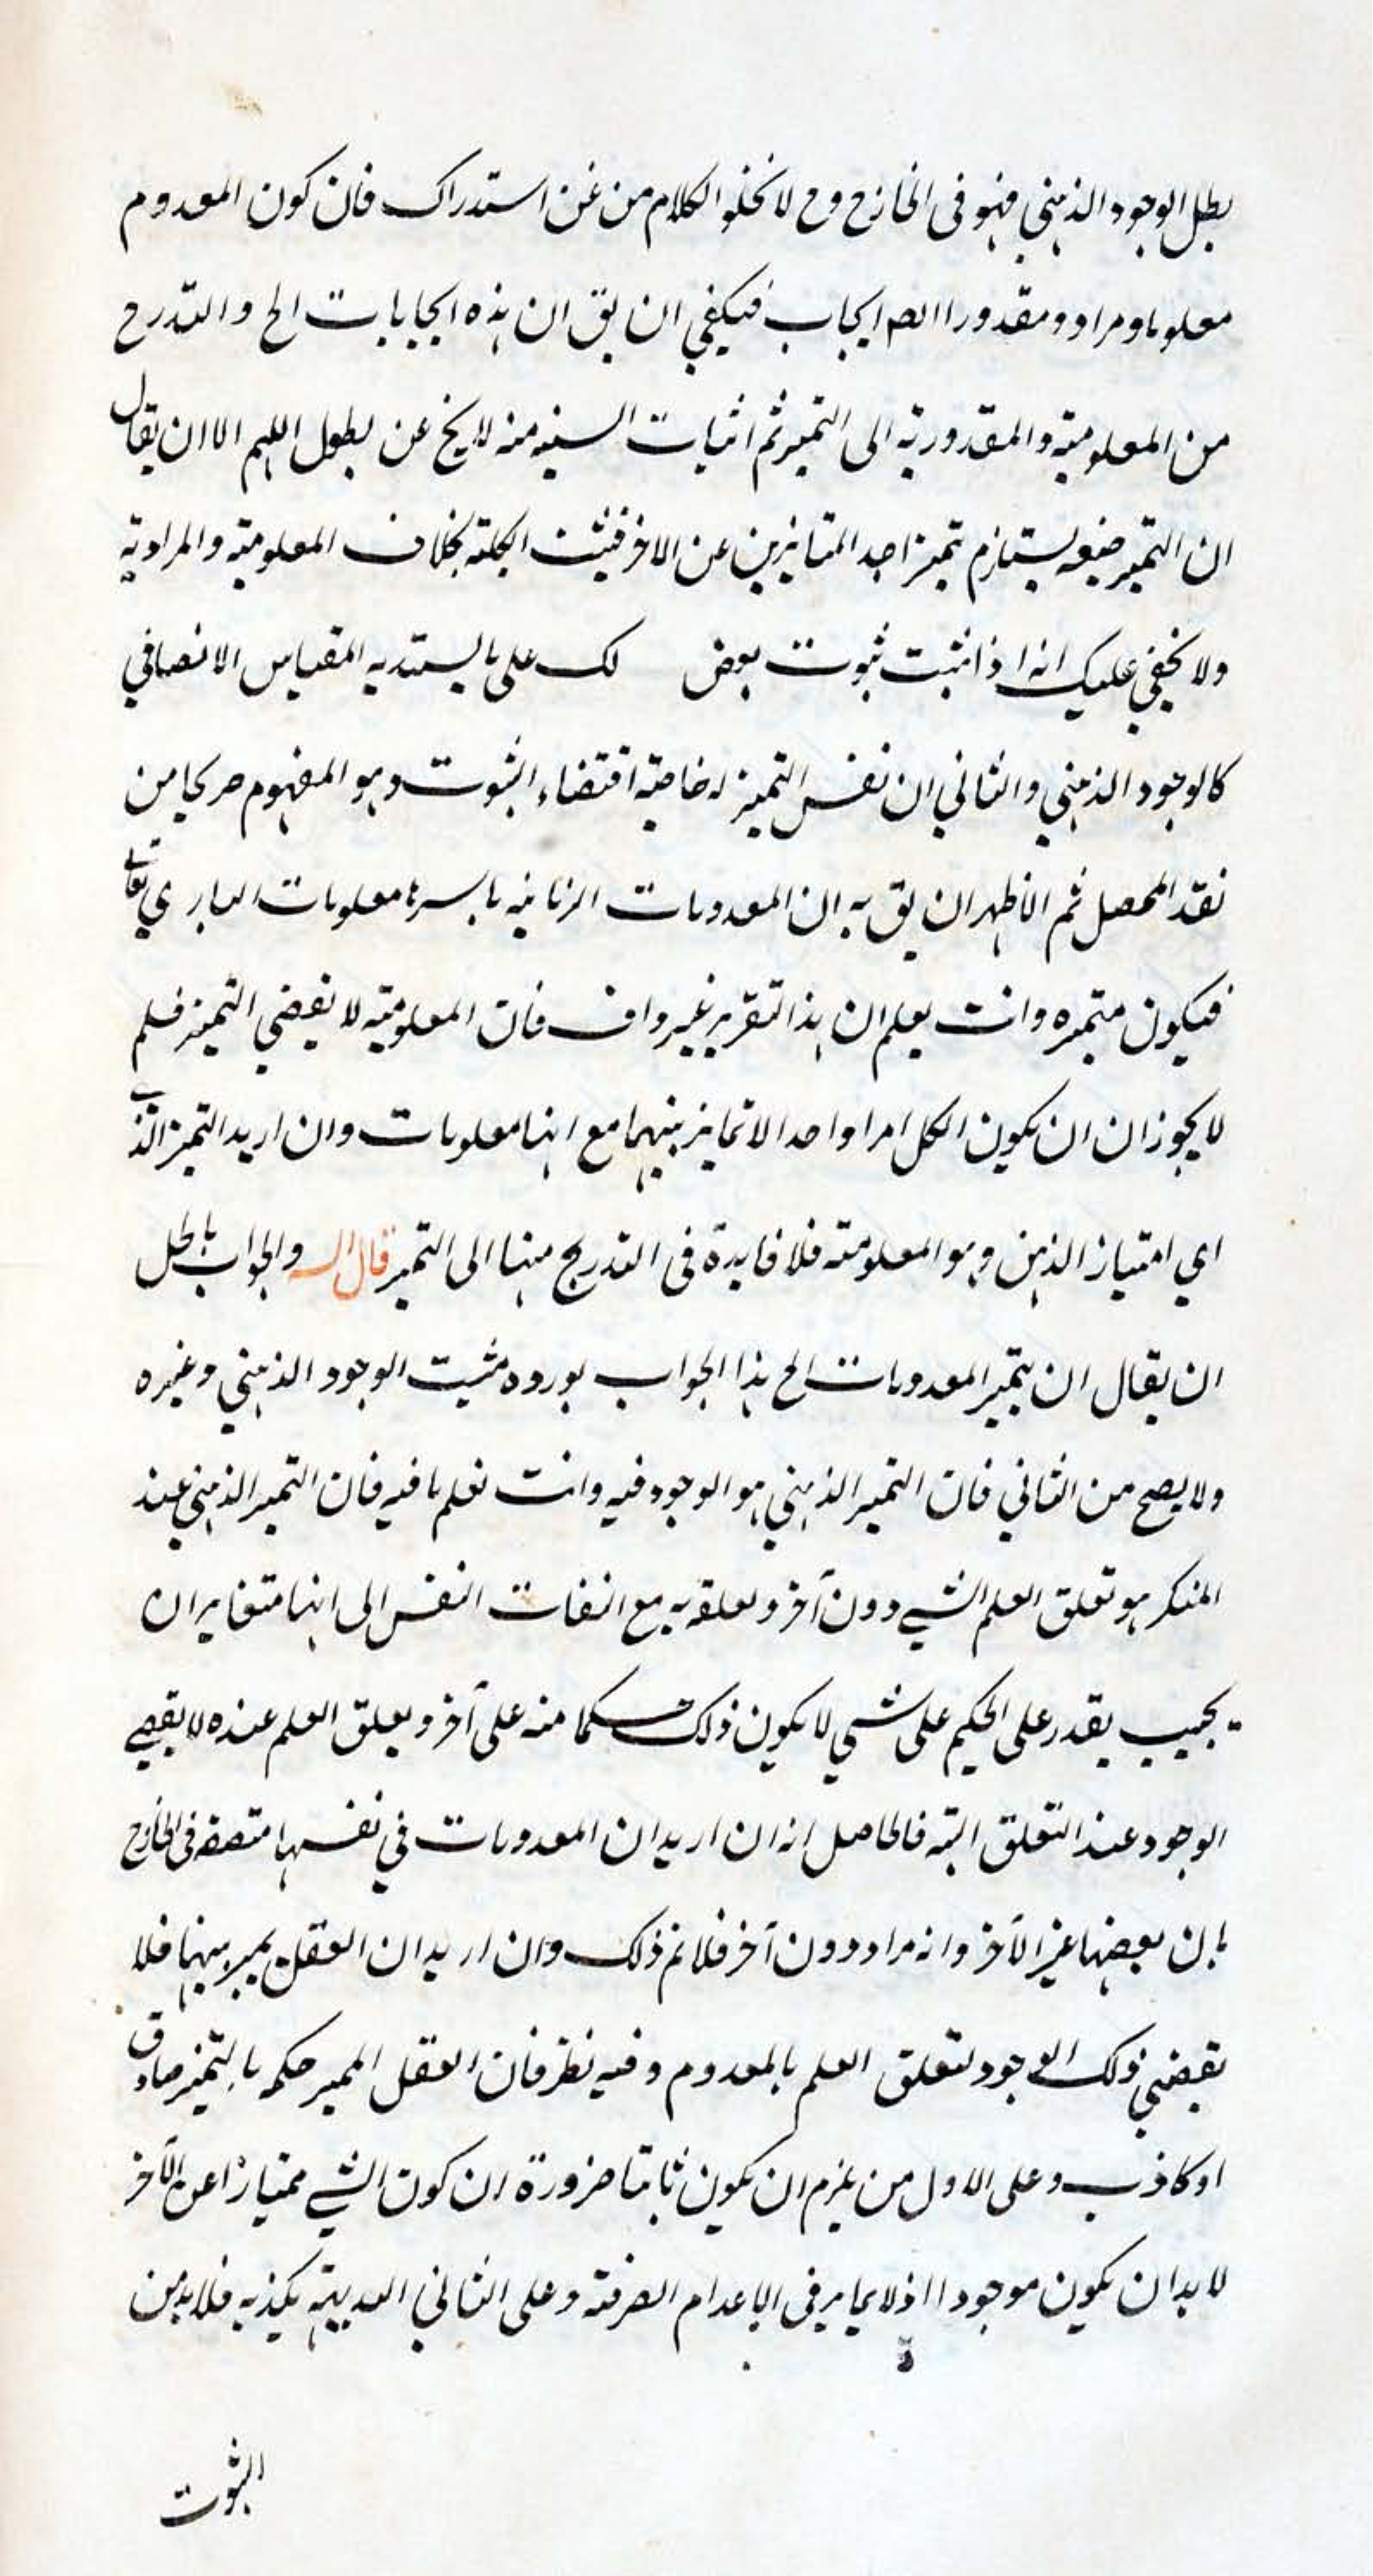 بطل الوجود الذهني فهو في الخارج وح لا يخلو الكلام من عن استدراك فان كون المعدوم
معلوما ومراد ومقدورا ايضا ايجاب فيكفي ان يق ان هذه ايجابات الخ والتدرح
من المعلومية والمقدورية الى التميز ثم اثبات منه لا يخ عن بطول اللهم الا ان يقال
ان التميز يستلزم تميز احد المتمايزين عن الاخر فيثبت بخلاف المعلومية والمرادية
ولا يخفي عليك انه اذا ثبت ثبوت بعض لك على ما المقياس الانصافي
كالوجود الذهني والثاني ان نفس التميز له خاصية اقتضاء الثبوت وهو المفهوم صريحا من
نقد المحصل ثم الاظهر ان يق به ان المعدومات الزمانيه باسرها معلومات الباري تعالى
فيكون متميزه وانت يعلم ان هذا التقرير غير واف فان المعلومية لا يقضي التميز فلم
لا يجوز ان ان يكون الكل امرا واحدا لا تمايز بينهما مع انها معلومات وان اريد التميز الذ
اي امتياز الذهن وهو المعلومية فلا فايدة في التدريج منها الى التميز قال الـ والجواب بالحل
ان يقال ان تميز المعدومات الخ هذا الجواب يورده مثبت الوجود الذهني وغيره
ولا يصح من الثاني فان التميز الذهني هو الوجود فيه وانت تعلم ما فيه فان التميز الذهني عند
المنكر هو تعلق العلم الشي دون آخر وتعلقه به مع التفات النفس الى انهما متغايران
يجيب يقدر على الحكيم على شي لا يكون ذلك منه على آخر ويعلق العلم عنده لا يقضي
الوجود عند التعلق البته فالحاصل انه ان اريد ان المعدومات في نفسها متصفه في الخارج
بان بعضها غير الآخر وانه مراد دون آخر فلا نم ذلك وان اريد ان العقل يميز بينهما فلا
يقضي ذلك الوجود لتعلق العلم بالمعدوم وفيه نظر فان العقل المميز حكمه بالتميز صادق
او كاذب وعلى الاول من يلزم ان يكون ثابتا ضرورة ان كون الشي ممتيازا عن الآخر
لا بد ان يكون موجودا اذ لا يمايز في الاعدام الصرفة وعلى الثاني البديهة يكذبه فلا بد من
الثبوت